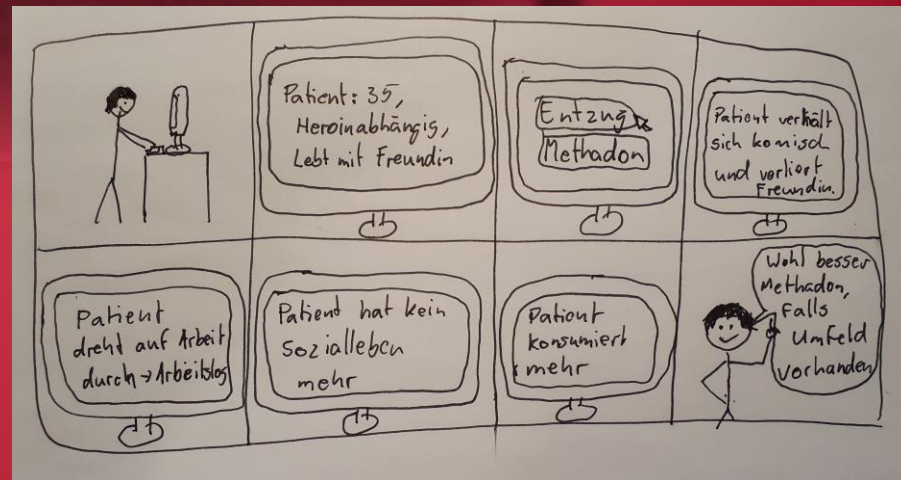 Patient: 35,
Heroinabhängig,
Lebt mit Freundin
Entzug
Methadon
Patient verhält
sich komisch
und verliert
Freundin.
Patient
dreht auf Arbeit
durch → Arbeitslos
Patient hat kein
Sozialleben
mehr
Patient
konsumiert
mehr
Wohl besser
Methadon,
Falls
Umfeld
vorhanden